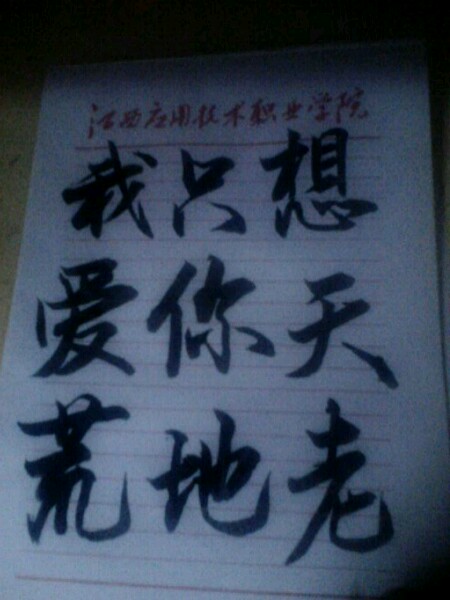 江西应用技术职业学院
我只想
爱你天
荒地老